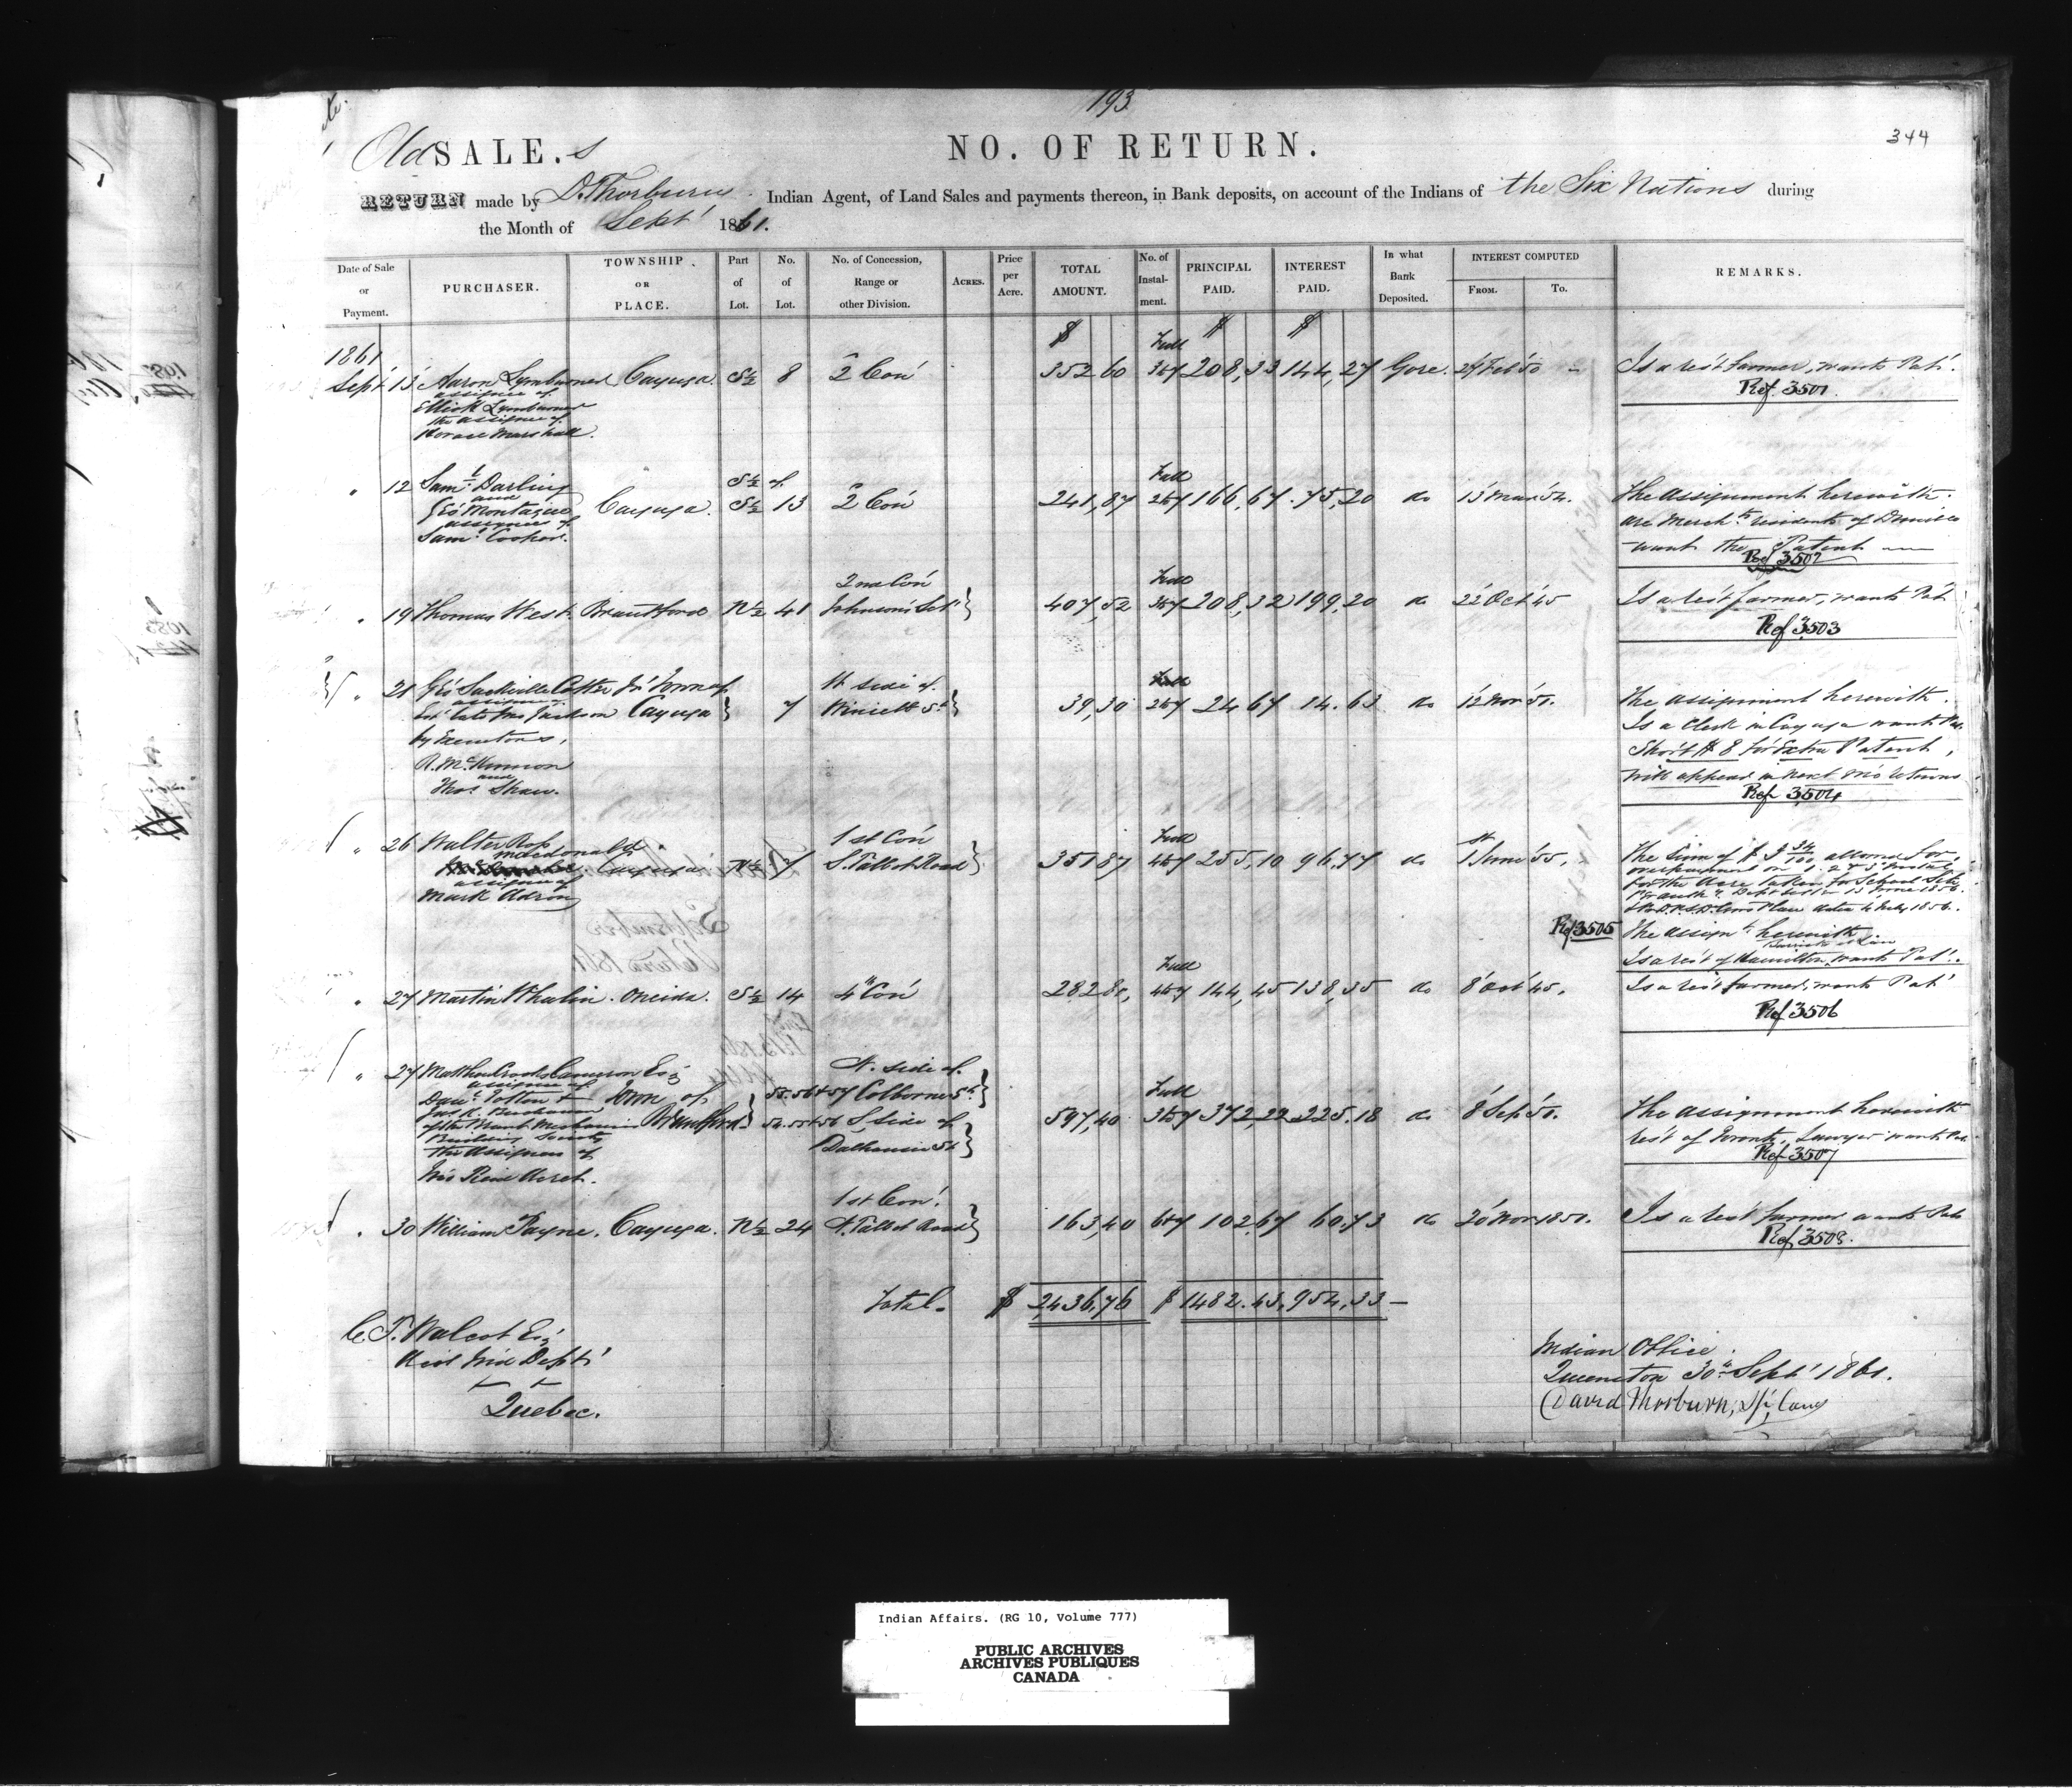 193
344
Old SALE.s
NO. OF RETURN.
RETURN made by D. Thorburn Indian Agent, of Land Sales and payments thereon, in Bank deposits, on account of the Indians of the Six Nations during
the Month of Sept' 1861.
Date of Sale or Payment.
PURCHASER.
TOWNSHIP OR PLACE.
Part of Lot.
No. of Lot.
No. of Concession, Range or other Division.
ACRES.
Price per Acre.
TOTAL AMOUNT.
No. of Instal-ment.
PRINCIPAL PAID.
INTEREST PAID.
In what Bank Deposited.
INTEREST COMPUTED
FROM.
TO.
REMARKS.
$ $ $
1861 Full
Sept' 13 Aaron Lymburner Cayuga. S½ 8 2 Con' 352 60 208,33 144,27 Gore. Feb' 50 Is a res't farmer, wants Pat'.
assignee of
Elliott Lymburner
the assignee of
Horace Marshall.
Ref. 3501.
S½ of Full
" 12 Sam'l Darling Cayuga. S½ 13 2 Con' 241,87 166,67 75,20 do 13 Mar' 54. The assignment herewith.
and
Geo' Montague
assignees of
Sam'l Cooker.
are Merch'ts residents of
want the Patent
Ref 3502
2nd Con' Full
" 19 Thomas West. Brantford N½ 41 Johnson Set' 407,52 208,32 199,20 do 22 Oct' 45 Is a res't farmer, wants Pat'
Ref 3503
" 21 Geo' Sackville Cotter Town of Cayuga 7 side of Winiett St 39,30 24 67 14.63 do 12 Nov' 51. The assignment herewith.
by Executors,
R. McKinnon
and
Thos Shaw.
Is a Clerk in Cayuga wants Pat.
Short $8 for Extra Patent,
will appear in next mo's returns
Ref 3504
1st Con' Full
" 26 Walter Ross Macdonald Cayuga N½ 7 S. Talbot Road 351 87 255,10 96,77 do 1st June' 55.
assignee of
Mark Adron
The Sum of $3 34/100 allowed for
for the Acre taken for School Site
Ref 3505
The assign't herewith
Barrister at Law
Is a res't of Hamilton, wants Pat'.
Full
" 27 Martin Whalin. Oneida. S½ 14 4" Con' 282 80, 144,45 138,35 do 8 Oct' 45. Is a res't farmer, wants Pat'
Ref 3506
" 27 Matthew Crooks Cameron Esq N. side of
assignee of
Town of Brantford 55.56 & 57 Colborne St
Full
S. Side of Dalhousie St 597,40 372,22 225.18 do 8 Sep' 50. The assignment herewith
Building Society
the assignees of
res't of Toronto, Lawyer wants Pat.
Ref 3507
1st Con'.
" 30 William Payne. Cayuga. N½ 24 N. Talbot Road 163,40 102,67 60.73 do 20 Nov 1850. Is a res't farmer wants Pat
Ref 3508.
Total. $ 2,436,76 $ 1482.43, 954,33
C. T. Walcot Esq'
Ind Dept'
Quebec.
Indian Office
Queenston 30th Sept' 1861.
David Thorburn,
September
Indian Affairs. (RG 10, Volume 777)
PUBLIC ARCHIVES
ARCHIVES PUBLIQUES
CANADA